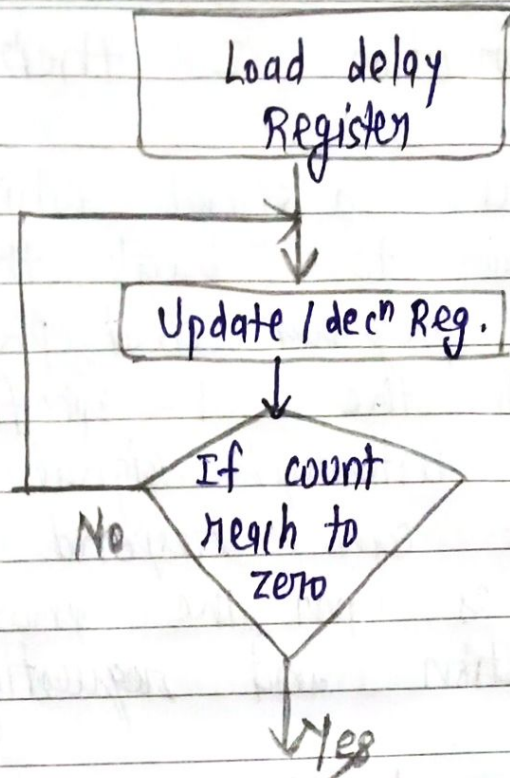 Load delay
Register
Update / decⁿ Reg.
If count
reach to
zero
No
Yes